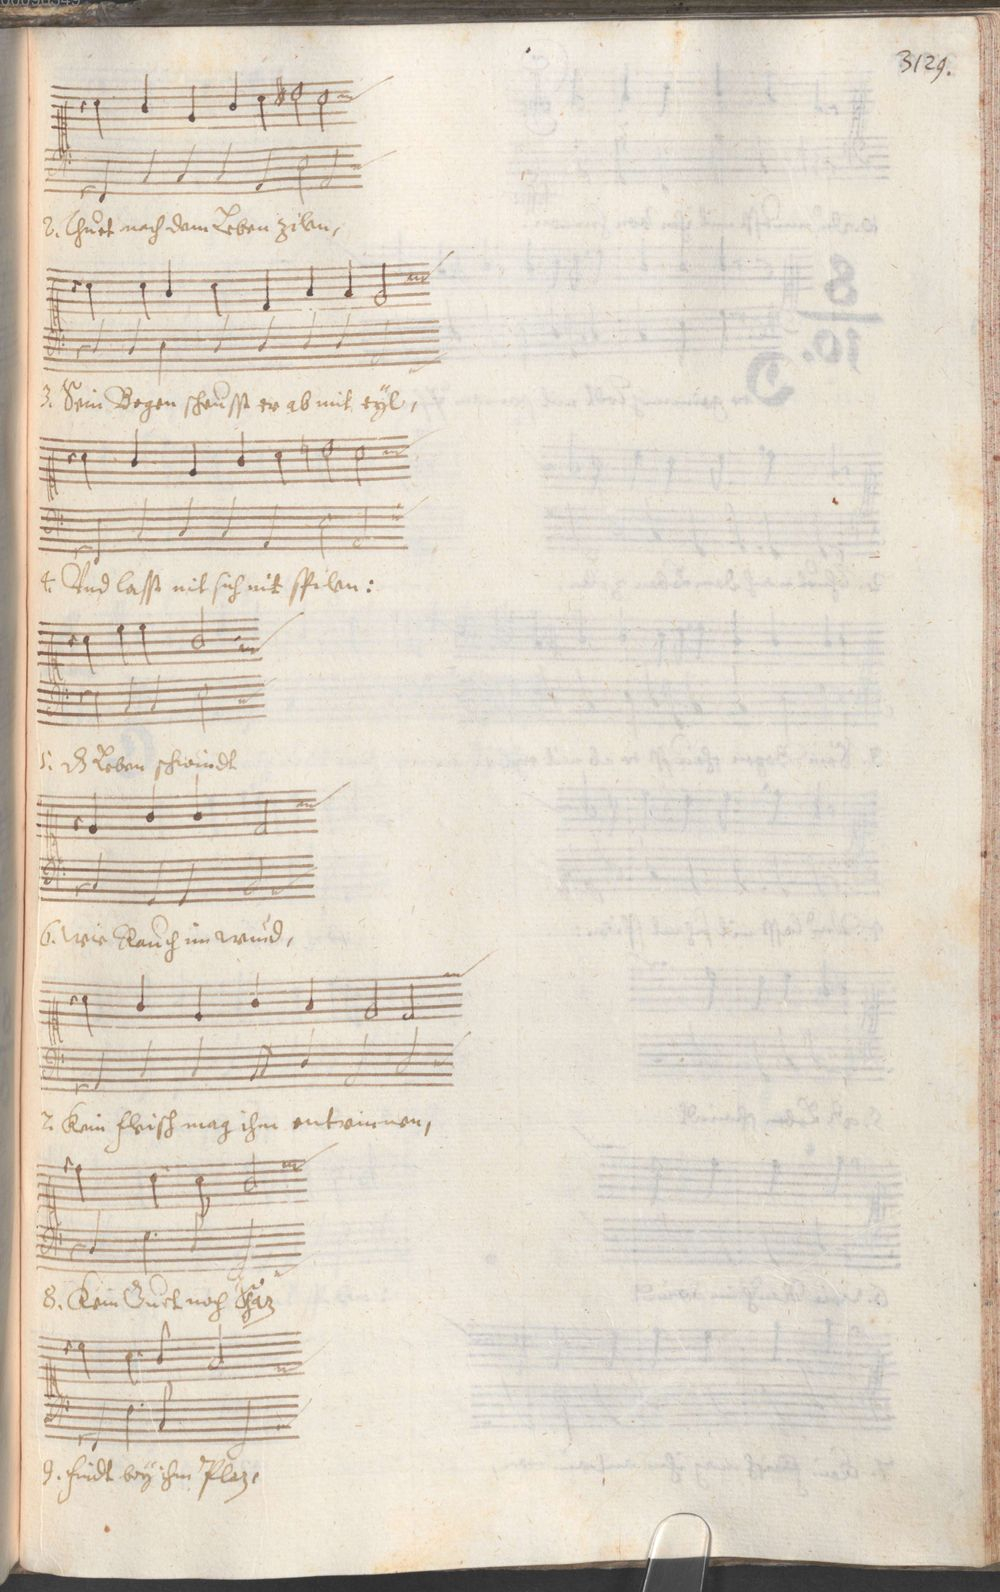 3129.
2. Thuet nach dem Leben zilen,
3. Sein Bogen scheusst er ab mit eyl,
4. Und lasst mit sich nit spilen:
5. Dz Leben schwindt
6. Wie Rauch im wind,
7. Kein fleisch mag ihm entrinnen,
8. Kein Guet noch Schaz
9. findt bey ihm Plaz,